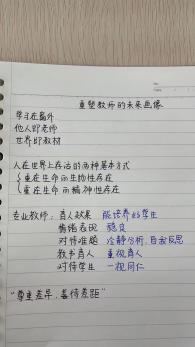 重塑教师的未来画像
学习在窗外
他人即老师
世界即教材
人在世界上存活的两种基本方式
重在生命而生物性存在
重在生命而精神性存在
专业教师：育人效果 能培养好学生
情绪表现 稳定
对待难题 冷静分析，自我反思
教书育人 重视育人
对待学生 一视同仁
“尊重差异，善待差距”